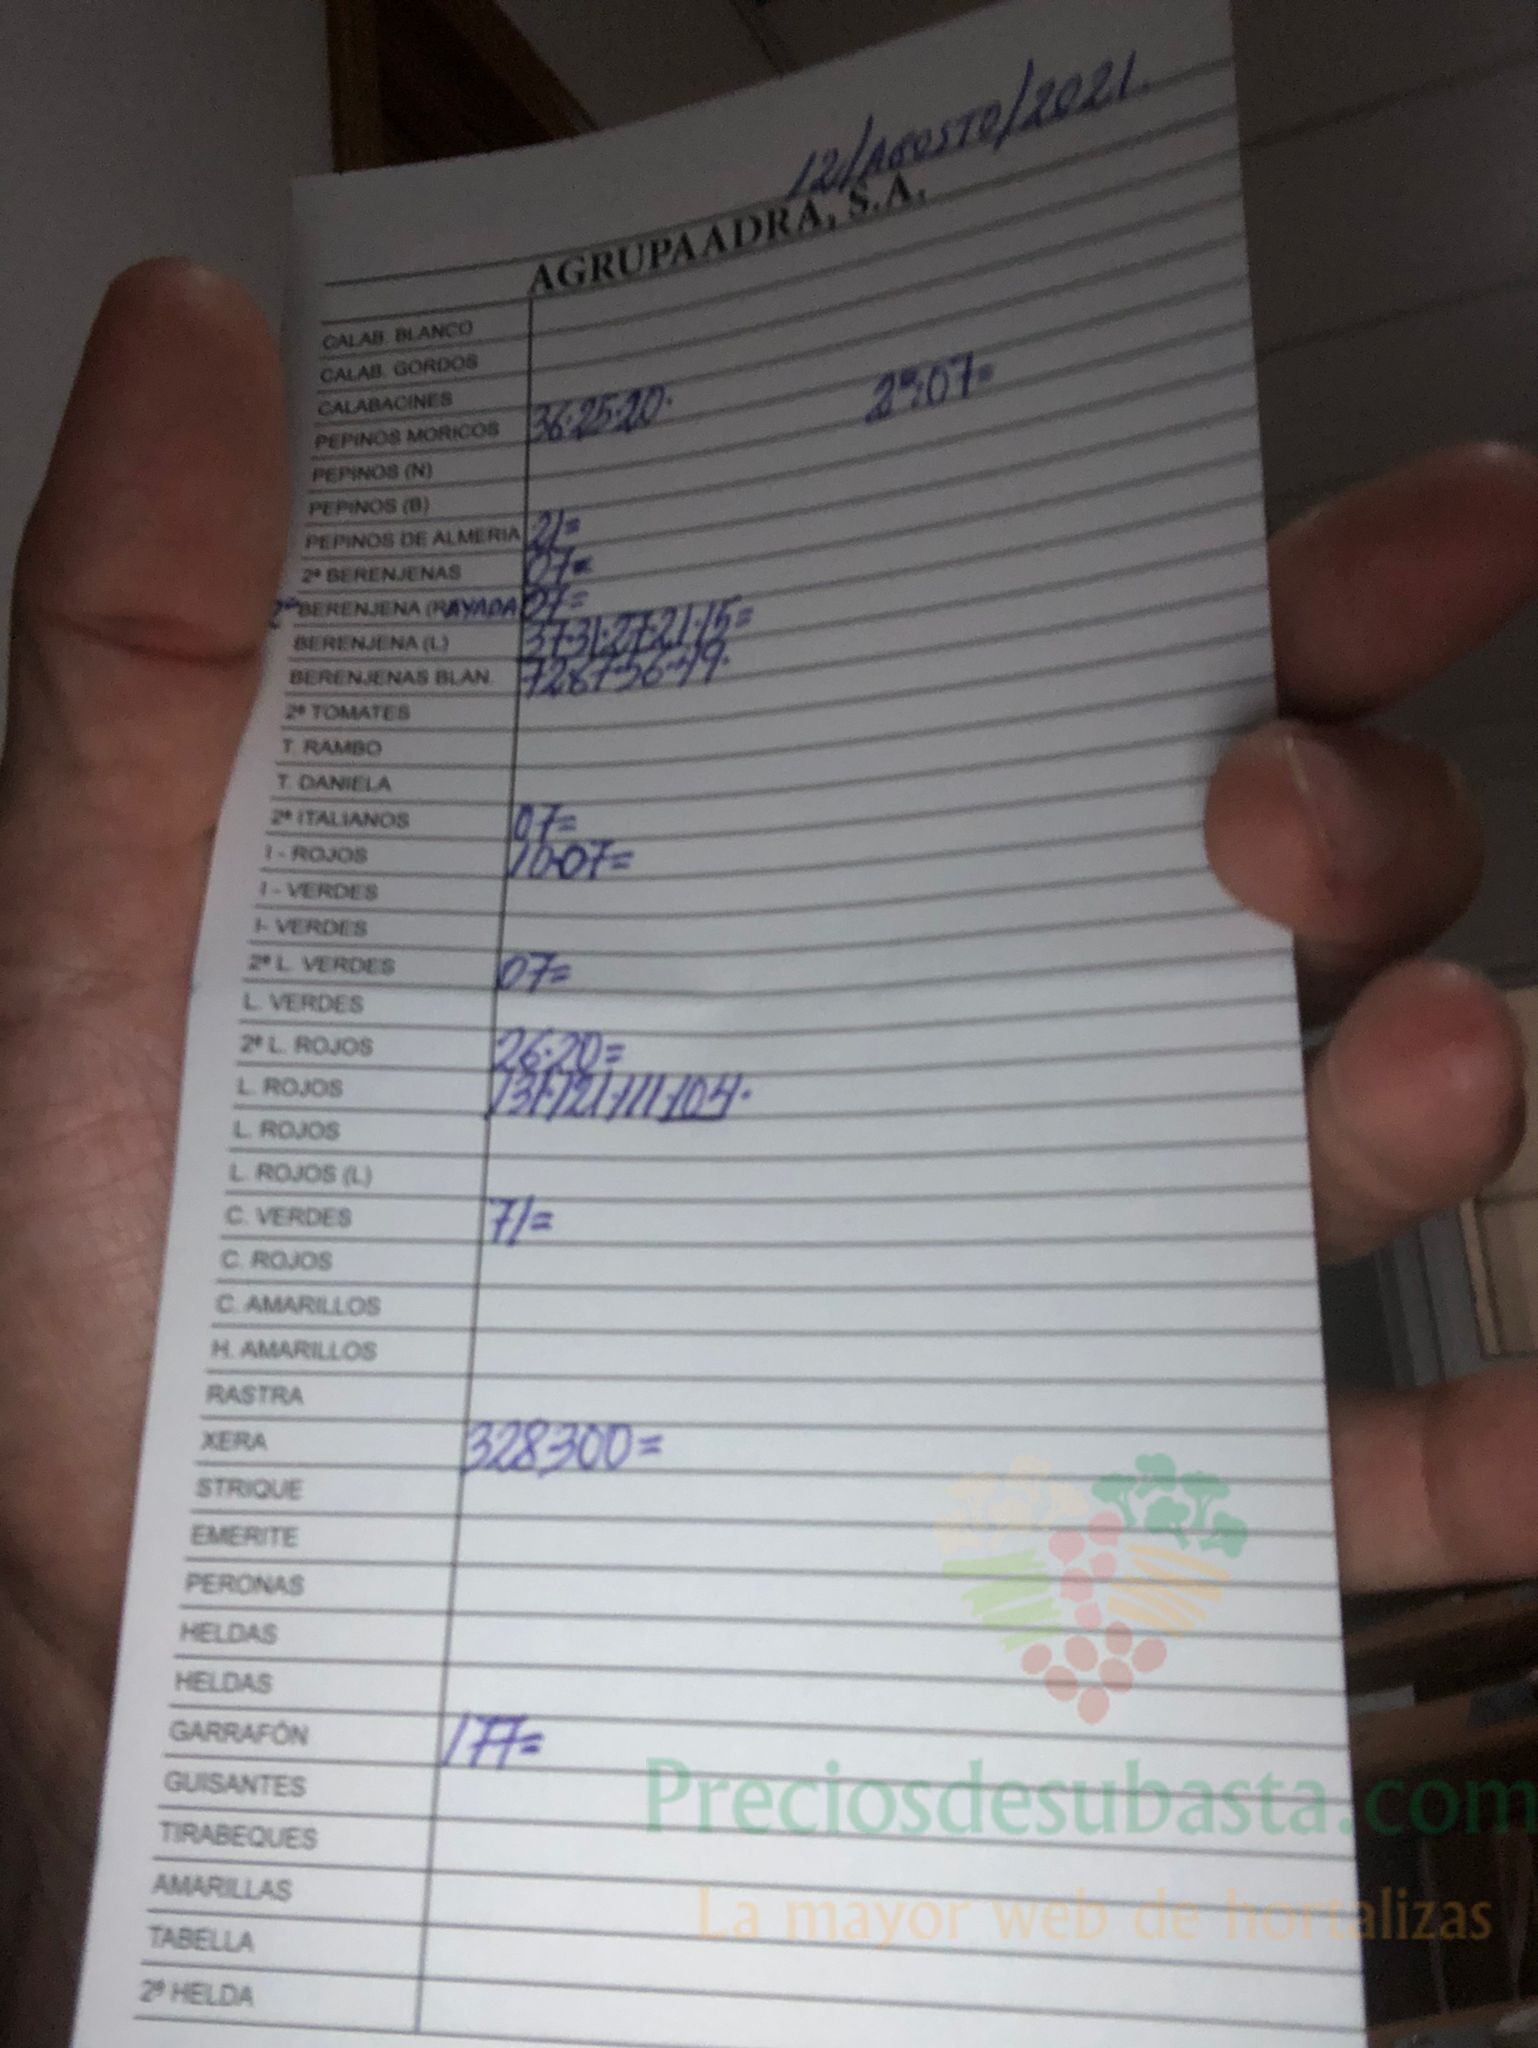 12/AGOSTO/2021.
AGRUPAADRA, S.A.
CALAB. BLANCO
CALAB. GORDOS
CALABACINES
PEPINOS MORICOS 36·25·20· 2ª:07=
PEPINOS (N)
PEPINOS (B)
PEPINOS DE ALMERIA 21=
2ª BERENJENAS 07=
2ª BERENJENA (RAYADA 07=
BERENJENA (L) 37·31·27·21·15=
BERENJENAS BLAN. 72·67·56·49·
2ª TOMATES
T. RAMBO
T. DANIELA
2ª ITALIANOS 07=
I - ROJOS 10·07=
I - VERDES
I- VERDES
2ª L. VERDES 07=
L. VERDES
2ª L. ROJOS 26·20=
L. ROJOS 131·121·111·104·
L. ROJOS
L. ROJOS (L)
C. VERDES 71=
C. ROJOS
C. AMARILLOS
H. AMARILLOS
RASTRA
XERA 328,300=
STRIQUE
EMERITE
PERONAS
HELDAS
HELDAS
GARRAFÓN 177=
GUISANTES
TIRABEQUES
AMARILLAS
TABELLA
2ª HELDA
Preciosdesubasta.com
La mayor web de hortalizas